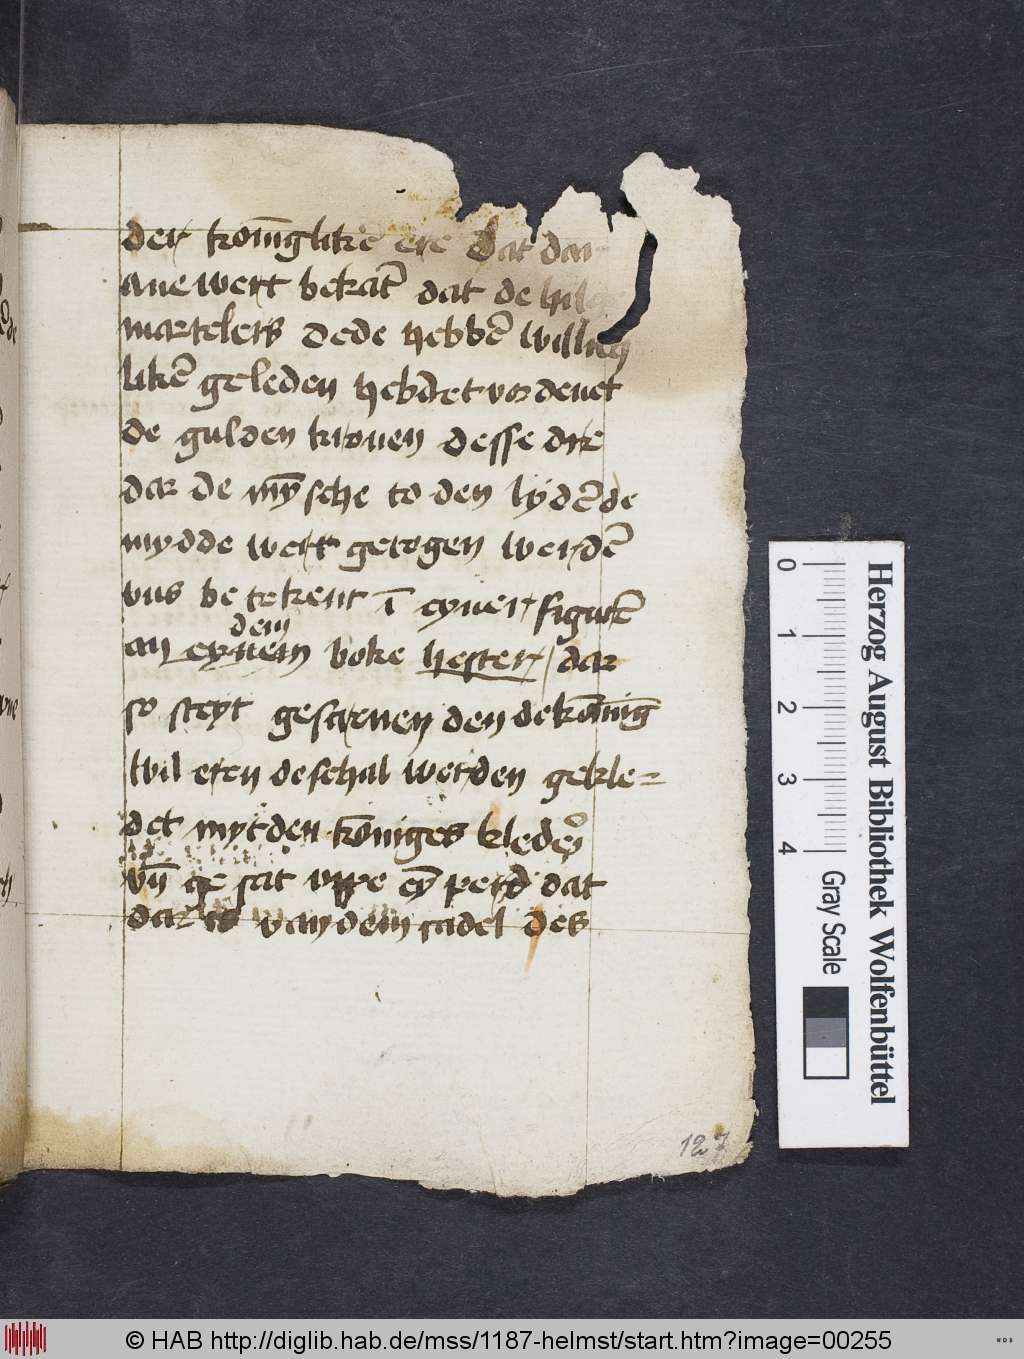 der koniglikē ere dat dar
ane wert bekāt dat de hilge
martelers dede hebbē willich
likē geleden hebdet vordenet
de gulden kronen desse dre
dar de mȳsche to den lydēde
mydde wert getogen werdē
vns betekent ī eyner figurē
an eynem dem boke hester dar
so steyt gescreuen den de konnīg
wil eren de schal werden gekle=
det myt den koniges kleder
vn̄ gesat vppe eȳ perd dat
dar is van dem sadel des
127
Herzog August Bibliothek Wolfenbüttel
0 1 2 3 4
Gray Scale
© HAB http://diglib.hab.de/mss/1187-helmst/start.htm?image=00255